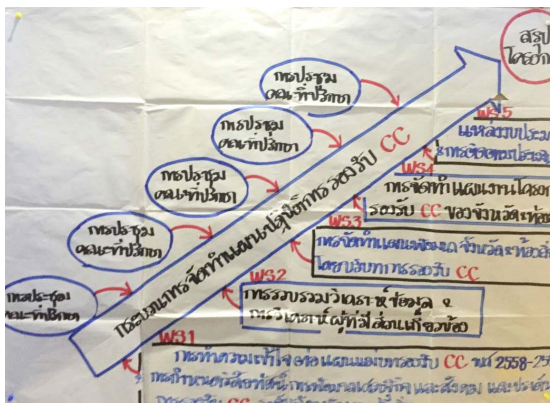 สรุป
การประชุม
คณะที่ปรึกษา
การประชุม
คณะที่ปรึกษา
การประชุม
คณะที่ปรึกษา
การประชุม
คณะที่ปรึกษา
การประชุม
คณะที่ปรึกษา
กระบวนการจัดทำแผนปฏิบัติการรองรับ CC
WS.5
แหล่งงบประมา
การติดตามประเมิน
WS4
การจัดทำแผนงานโครงก
รองรับ CC ของจังหวัด
WS.3
การจัดทำแผนพัฒนาจังหวัด
การรองรับ CC
WS2
การรวบรวมวิเคราะห์ข้อมูล
การวิเคราะห์ผู้ที่มีส่วนเกี่ยวข้อง
WS1
การทำความเข้าใจต่อแผนแม่บทรองรับ CC 2558-25
การกำหนดวิสัยทัศน์การพัฒนาเศรษฐกิจและสังคม
CC